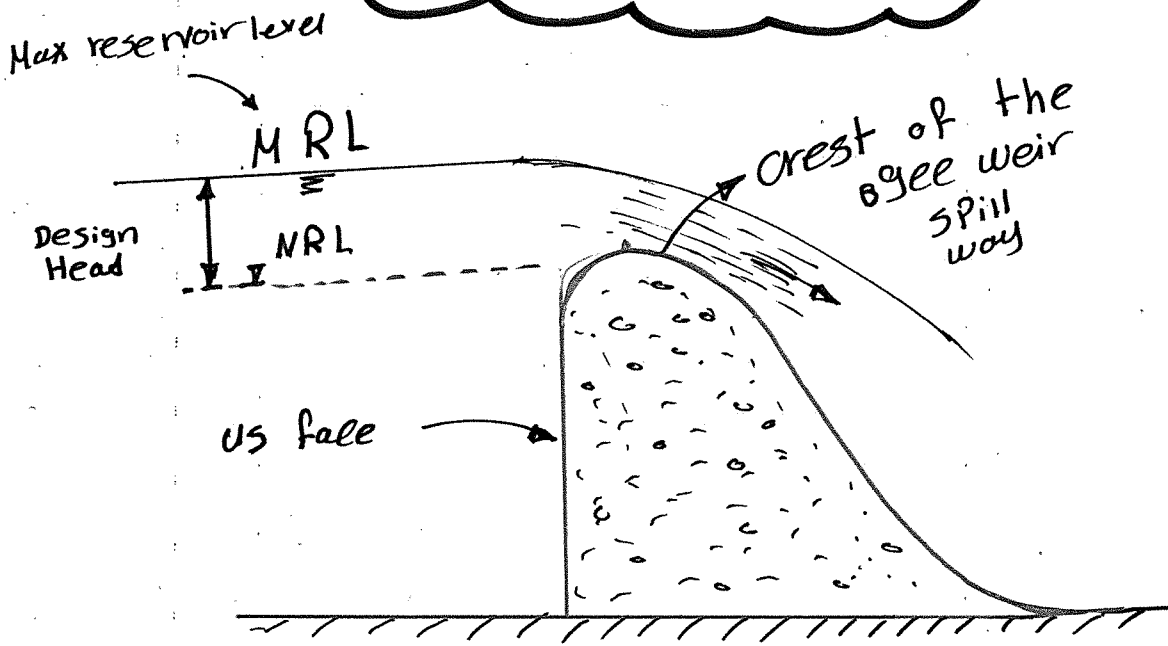 Max reservoir level
MRL
Design
Head
NRL
crest of the
ogee weir
spill
way
US face